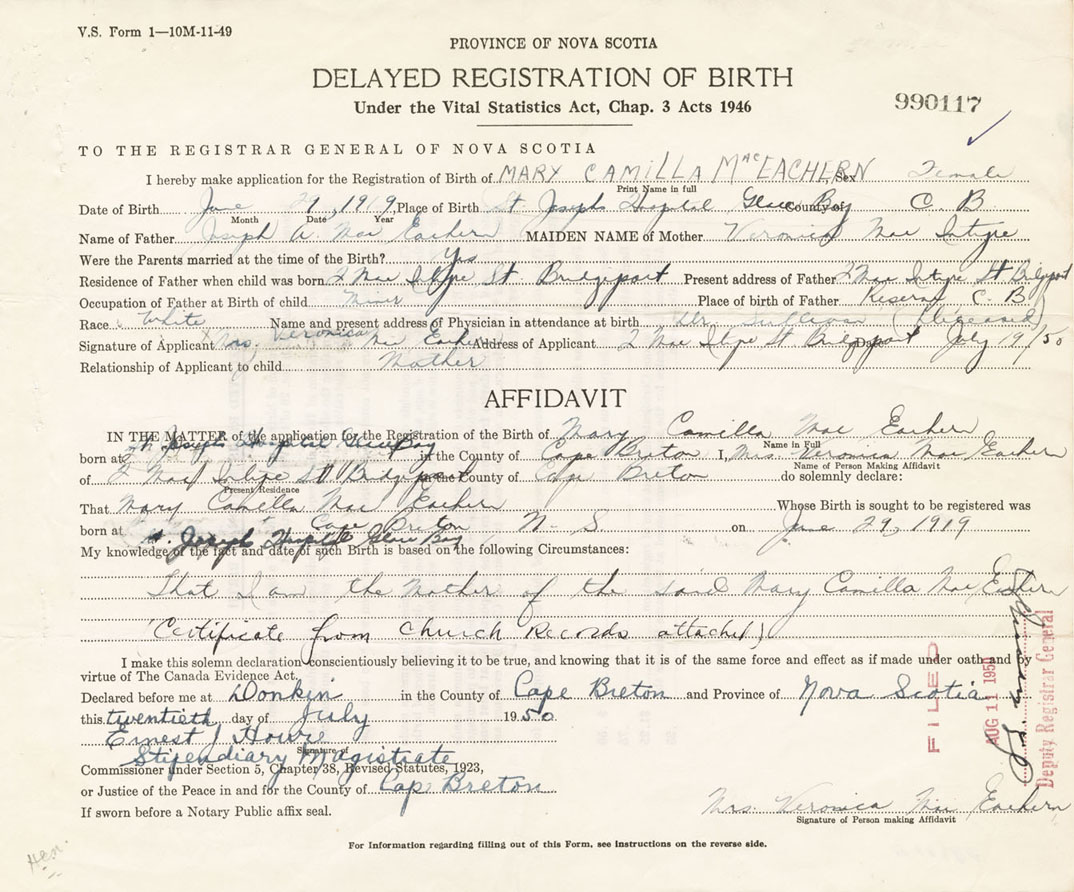 V.S. Form 1—10M-11-49
PROVINCE OF NOVA SCOTIA
DELAYED REGISTRATION OF BIRTH
Under the Vital Statistics Act, Chap. 3 Acts 1946
990117
TO THE REGISTRAR GENERAL OF NOVA SCOTIA
I hereby make application for the Registration of Birth of MARY CAMILLA MacEACHERN Sex Female
Print Name in full
Date of Birth June 29, 1919, Place of Birth St Josephs Hospital Glace Bay County of C. B
Month Date Year
Name of Father Joseph A. Mac Eachern MAIDEN NAME of Mother Veronica Mac Intyre
Were the Parents married at the time of the Birth? Yes
Residence of Father when child was born 2 Mac Intyre St. Bridgeport Present address of Father 2 Mac Intyre St Bridgeport
Occupation of Father at Birth of child Miner Place of birth of Father Reserve C. B
Race White Name and present address of Physician in attendance at birth Dr. Sullivan (Deceased)
Signature of Applicant Mrs. Veronica Mac Eachern Address of Applicant 2 Mac Intyre St Bridgeport Date July 19/50
Relationship of Applicant to child Mother
AFFIDAVIT
IN THE MATTER of the application for the Registration of the Birth of Mary Camilla Mac Eachern
Name in Full
born at St. Josephs Hospital Glace Bay in the County of Cape Breton I, Mrs. Veronica Mac Eachern
Name of Person Making Affidavit
of 2 Mac Intyre St Bridgeport in the County of Cape Breton do solemnly declare:
Present Residence
That Mary Camilla Mac Eachern Whose Birth is sought to be registered was
born at Cape Breton N. S. on June 29, 1919
St. Joseph Hospital Glace Bay
My knowledge of the fact and date of such Birth is based on the following Circumstances:
That I am the Mother of the said Mary Camilla Mac Eachern
(Certificate from Church Records attached)
I make this solemn declaration conscientiously believing it to be true, and knowing that it is of the same force and effect as if made under oath and by
virtue of The Canada Evidence Act.
Declared before me at Donkin in the County of Cape Breton and Province of Nova Scotia
this twentieth day of July 1950
Ernest J Howie
Signature of
Stipendiary Magistrate
Commissioner under Section 5, Chapter 38, Revised Statutes, 1923,
or Justice of the Peace in and for the County of Cap Breton
If sworn before a Notary Public affix seal.
Mrs. Veronica Mac Eachern
Signature of Person making Affidavit
FILED
AUG 11 1950
Deputy Registrar General
For Information regarding filling out of this Form, see instructions on the reverse side.